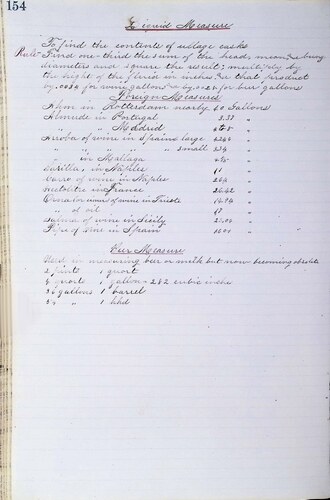 154
Liquid Measure
To find the contents of ullage casks
Rule Find one-third the sum of the head, mean & bung
diameters and square the result; multiply by
the hight of the fluid in inches & that product
by .0034 for wine gallons & by .0028 for beer gallons
Foreign Measures
Ahm in Rotterdam nearly 40 Gallons
Almude in Portugal "
" " Madrid "
Arroba of wine in Spain large "
" " " " " small "
" in Mallaga "
Barilla, in Naples 11 "
of wine in Naples "
Hectolitre in France 26.42 "
of wine in Trieste "
" of oil 17 "
of wine in Sicily "
Pipe of wine in Spain "
Beer Measure
Used in measuring beer or milk but now becoming obsolete
2 pints 1 quart
4 quart 1 gallon = 282 cubic inches
36 gallons 1 barrel
54 " 1 hhd